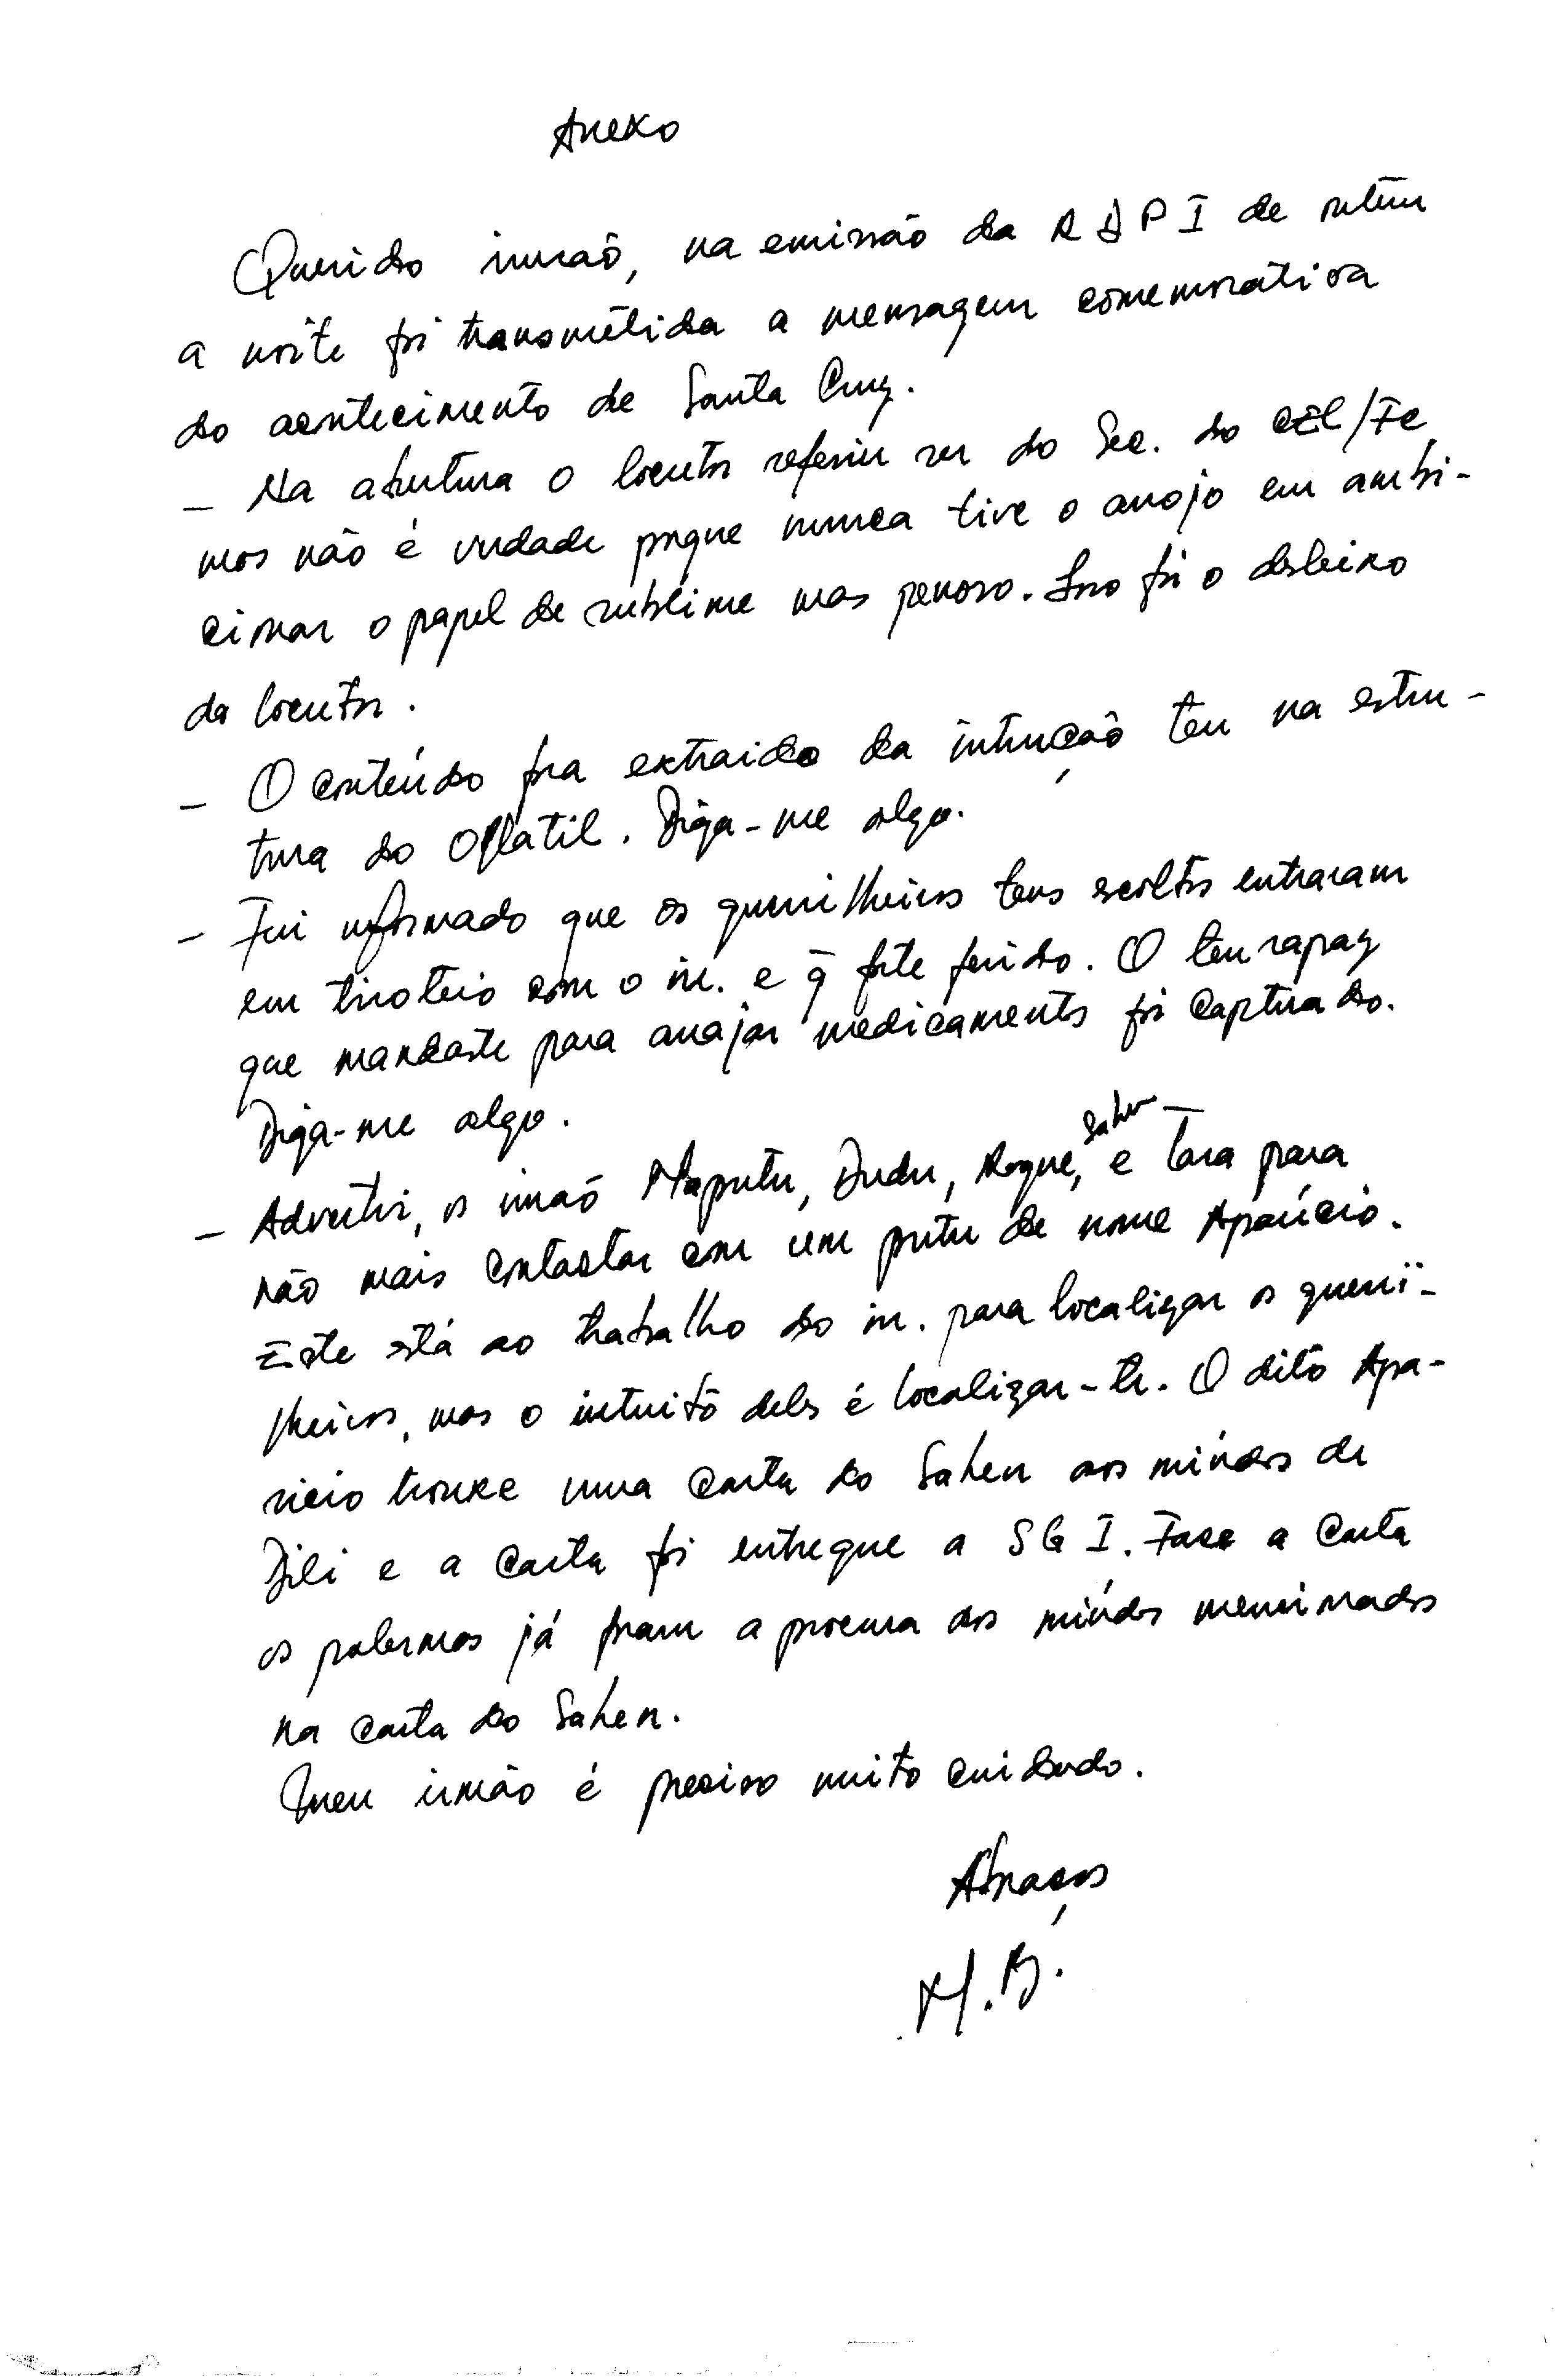 Anexo
Querido irmaõ, na emissão da RDPI de ontem
a noite foi transmitida a mensagem comemorativa
do acontecimento de Santa Cruz.
– Na abertura o locutor referiu ser do Sec. do CEL/FC,
mas não é verdade porque nunca tive o arrojo em ambi-
cionar o papel de sublime mas penoso. Isso foi o desleixo
do locutor.
– O conteúdo fora extraido da intrução teu na estru-
tura do Oflatil. Diga-me algo.
– Fui informado que os guerrilheiros teus escoltos entraram
em tiroteio com o in. e q̄ foste ferido. O teu rapaz
que mandaste para arrajar medicamentos foi capturado.
Diga-me algo.
– Advertir, os irmaõ Maputu, Dudu, Roque, Saher e Tara para
não mais contactar com um putu de nome Aparício.
Este está ao trabalho do in. para localizar os guerri-
lheiros, mas o intuito deles é localizar-te. O dito Apa-
ricio trouxe uma carta do Saher aos miúdos de
Dili e a carta foi entregue a SGI. Face a carta
os palermas já foram a procura dos miúdos mencinados
na carta do Saher.
Meu irmão é preciso muito cuidado.
Abraços
M.B.